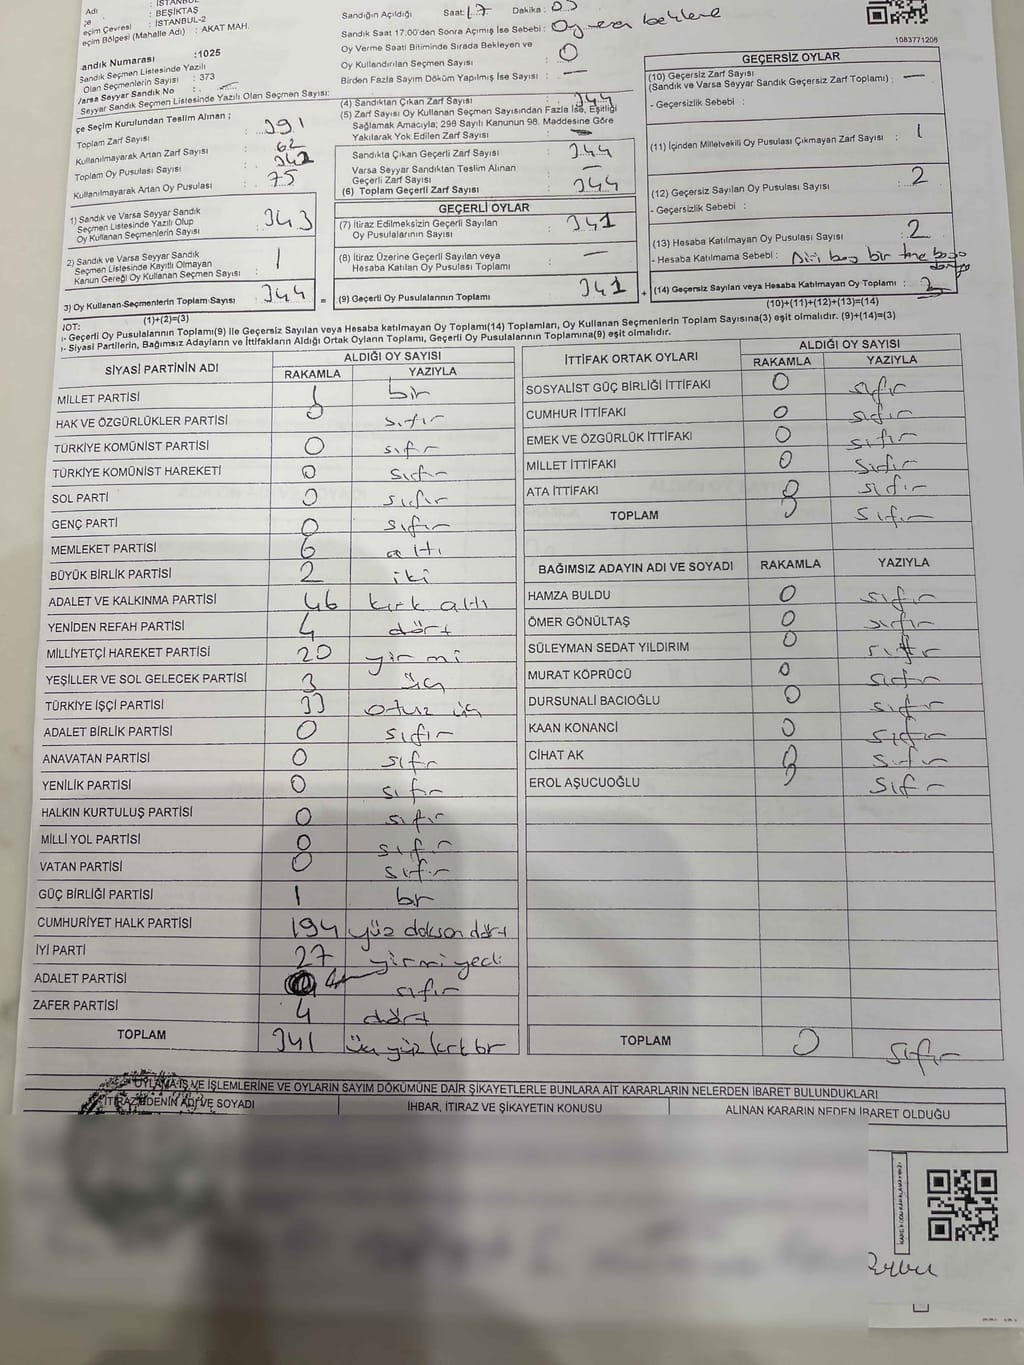 Adı : İSTANBUL
çe : BEŞİKTAŞ
eçim Çevresi : İSTANBUL-2
eçim Bölgesi (Mahalle Adı) : AKAT MAH.
andık Numarası :1025
Sandık Seçmen Listesinde Yazılı
Olan Seçmenlerin Sayısı : 373
Varsa Seyyar Sandık No :
Seyyar Sandık Seçmen Listesinde Yazılı Olan Seçmen Sayısı:
çe Seçim Kurulundan Teslim Alınan ;
Toplam Zarf Sayısı : 391
Kullanılmayarak Artan Zarf Sayısı : 62
Toplam Oy Pusulası Sayısı :
Kullanılmayarak Artan Oy Pusulası : 75
1) Sandık ve Varsa Seyyar Sandık
Seçmen Listesinde Yazılı Olup
Oy Kullanan Seçmenlerin Sayısı : 343
2) Sandık ve Varsa Seyyar Sandık
Seçmen Listesinde Kayıtlı Olmayan
Kanun Gereği Oy Kullanan Seçmen Sayısı : 1
3) Oy Kullanan Seçmenlerin Toplam Sayısı : 344 =
(1)+(2)=(3)
Sandığın Açıldığı Saat: 17 Dakika :
Sandık Saat 17:00'den Sonra Açımış İse Sebebi : Oy veren bekleme
Oy Verme Saati Bitiminde Sırada Bekleyen ve
Oy Kullandırılan Seçmen Sayısı : 0
Birden Fazla Sayım Döküm Yapılmış İse Sayısı : —
(4) Sandıktan Çıkan Zarf Sayısı : 344
(5) Zarf Sayısı Oy Kullanan Seçmen Sayısından Fazla İse, Eşitliği
Sağlamak Amacıyla; 298 Sayılı Kanunun 98. Maddesine Göre
Yakılarak Yok Edilen Zarf Sayısı : —
Sandıkta Çıkan Geçerli Zarf Sayısı : 344
Varsa Seyyar Sandıktan Teslim Alınan
Geçerli Zarf Sayısı : —
(6) Toplam Geçerli Zarf Sayısı : 344
GEÇERLİ OYLAR
(7) İtiraz Edilmeksizin Geçerli Sayılan
Oy Pusulalarının Sayısı : 341
(8) İtiraz Üzerine Geçerli Sayılan veya
Hesaba Katılan Oy Pusulası Toplamı : —
(9) Geçerli Oy Pusulalarının Toplamı : 341 +
1083771206
GEÇERSİZ OYLAR
(10) Geçersiz Zarf Sayısı
(Sandık ve Varsa Seyyar Sandık Geçersiz Zarf Toplamı) : —
- Geçersizlik Sebebi :
(11) İçinden Milletvekili Oy Pusulası Çıkmayan Zarf Sayısı : 1
(12) Geçersiz Sayılan Oy Pusulası Sayısı : 2
- Geçersizlik Sebebi :
(13) Hesaba Katılmayan Oy Pusulası Sayısı : 2
- Hesaba Katılmama Sebebi : Biri boş bir tane
(14) Geçersiz Sayılan veya Hesaba Katılmayan Oy Toplamı : 3
(10)+(11)+(12)+(13)=(14)
NOT:
- Geçerli Oy Pusulalarının Toplamı(9) İle Geçersiz Sayılan veya Hesaba katılmayan Oy Toplamı(14) Toplamları, Oy Kullanan Seçmenlerin Toplam Sayısına(3) eşit olmalıdır. (9)+(14)=(3)
- Siyasi Partilerin, Bağımsız Adayların ve İttifakların Aldığı Ortak Oyların Toplamı, Geçerli Oy Pusulalarının Toplamına(9) eşit olmalıdır.
SİYASİ PARTİNİN ADI ALDIĞI OY SAYISI
RAKAMLA YAZIYLA
MİLLET PARTİSİ 1 bir
HAK VE ÖZGÜRLÜKLER PARTİSİ 0 sıfır
TÜRKİYE KOMÜNİST PARTİSİ 0 sıfır
TÜRKİYE KOMÜNİST HAREKETİ 0 sıfır
SOL PARTİ 0 sıfır
GENÇ PARTİ 0 sıfır
MEMLEKET PARTİSİ 6 altı
BÜYÜK BİRLİK PARTİSİ 2 iki
ADALET VE KALKINMA PARTİSİ 46 kırk altı
YENİDEN REFAH PARTİSİ 4 dört
MİLLİYETÇİ HAREKET PARTİSİ 20 yirmi
YEŞİLLER VE SOL GELECEK PARTİSİ 3 üç
TÜRKİYE İŞÇİ PARTİSİ 33 otuz üç
ADALET BİRLİK PARTİSİ 0 sıfır
ANAVATAN PARTİSİ 0 sıfır
YENİLİK PARTİSİ 0 sıfır
HALKIN KURTULUŞ PARTİSİ 0 sıfır
MİLLİ YOL PARTİSİ 0 sıfır
VATAN PARTİSİ 0 sıfır
GÜÇ BİRLİĞİ PARTİSİ 1 bir
CUMHURİYET HALK PARTİSİ 194 yüz doksan dört
İYİ PARTİ 27 yirmi yedi
ADALET PARTİSİ sıfır
ZAFER PARTİSİ 4 dört
TOPLAM 341 üç yüz kırk bir
İTTİFAK ORTAK OYLARI ALDIĞI OY SAYISI
RAKAMLA YAZIYLA
SOSYALİST GÜÇ BİRLİĞİ İTTİFAKI 0 sıfır
CUMHUR İTTİFAKI 0 sıfır
EMEK VE ÖZGÜRLÜK İTTİFAKI 0 sıfır
MİLLET İTTİFAKI 0 sıfır
ATA İTTİFAKI 0 sıfır
TOPLAM 0 sıfır
BAĞIMSIZ ADAYIN ADI VE SOYADI RAKAMLA YAZIYLA
HAMZA BULDU 0 sıfır
ÖMER GÖNÜLTAŞ 0 sıfır
SÜLEYMAN SEDAT YILDIRIM 0 sıfır
MURAT KÖPRÜCÜ 0 sıfır
DURSUNALİ BACIOĞLU 0 sıfır
KAAN KONANCİ 0 sıfır
CİHAT AK 0 sıfır
EROL AŞUCUOĞLU 0 sıfır
TOPLAM 0 sıfır
OYLAMA İŞ VE İŞLEMLERİNE VE OYLARIN SAYIM DÖKÜMÜNE DAİR ŞİKAYETLERLE BUNLARA AİT KARARLARIN NELERDEN İBARET BULUNDUKLARI
İTİRAZ EDENİN ADI VE SOYADI İHBAR, İTİRAZ VE ŞİKAYETİN KONUSU ALINAN KARARIN NEDEN İBARET OLDUĞU